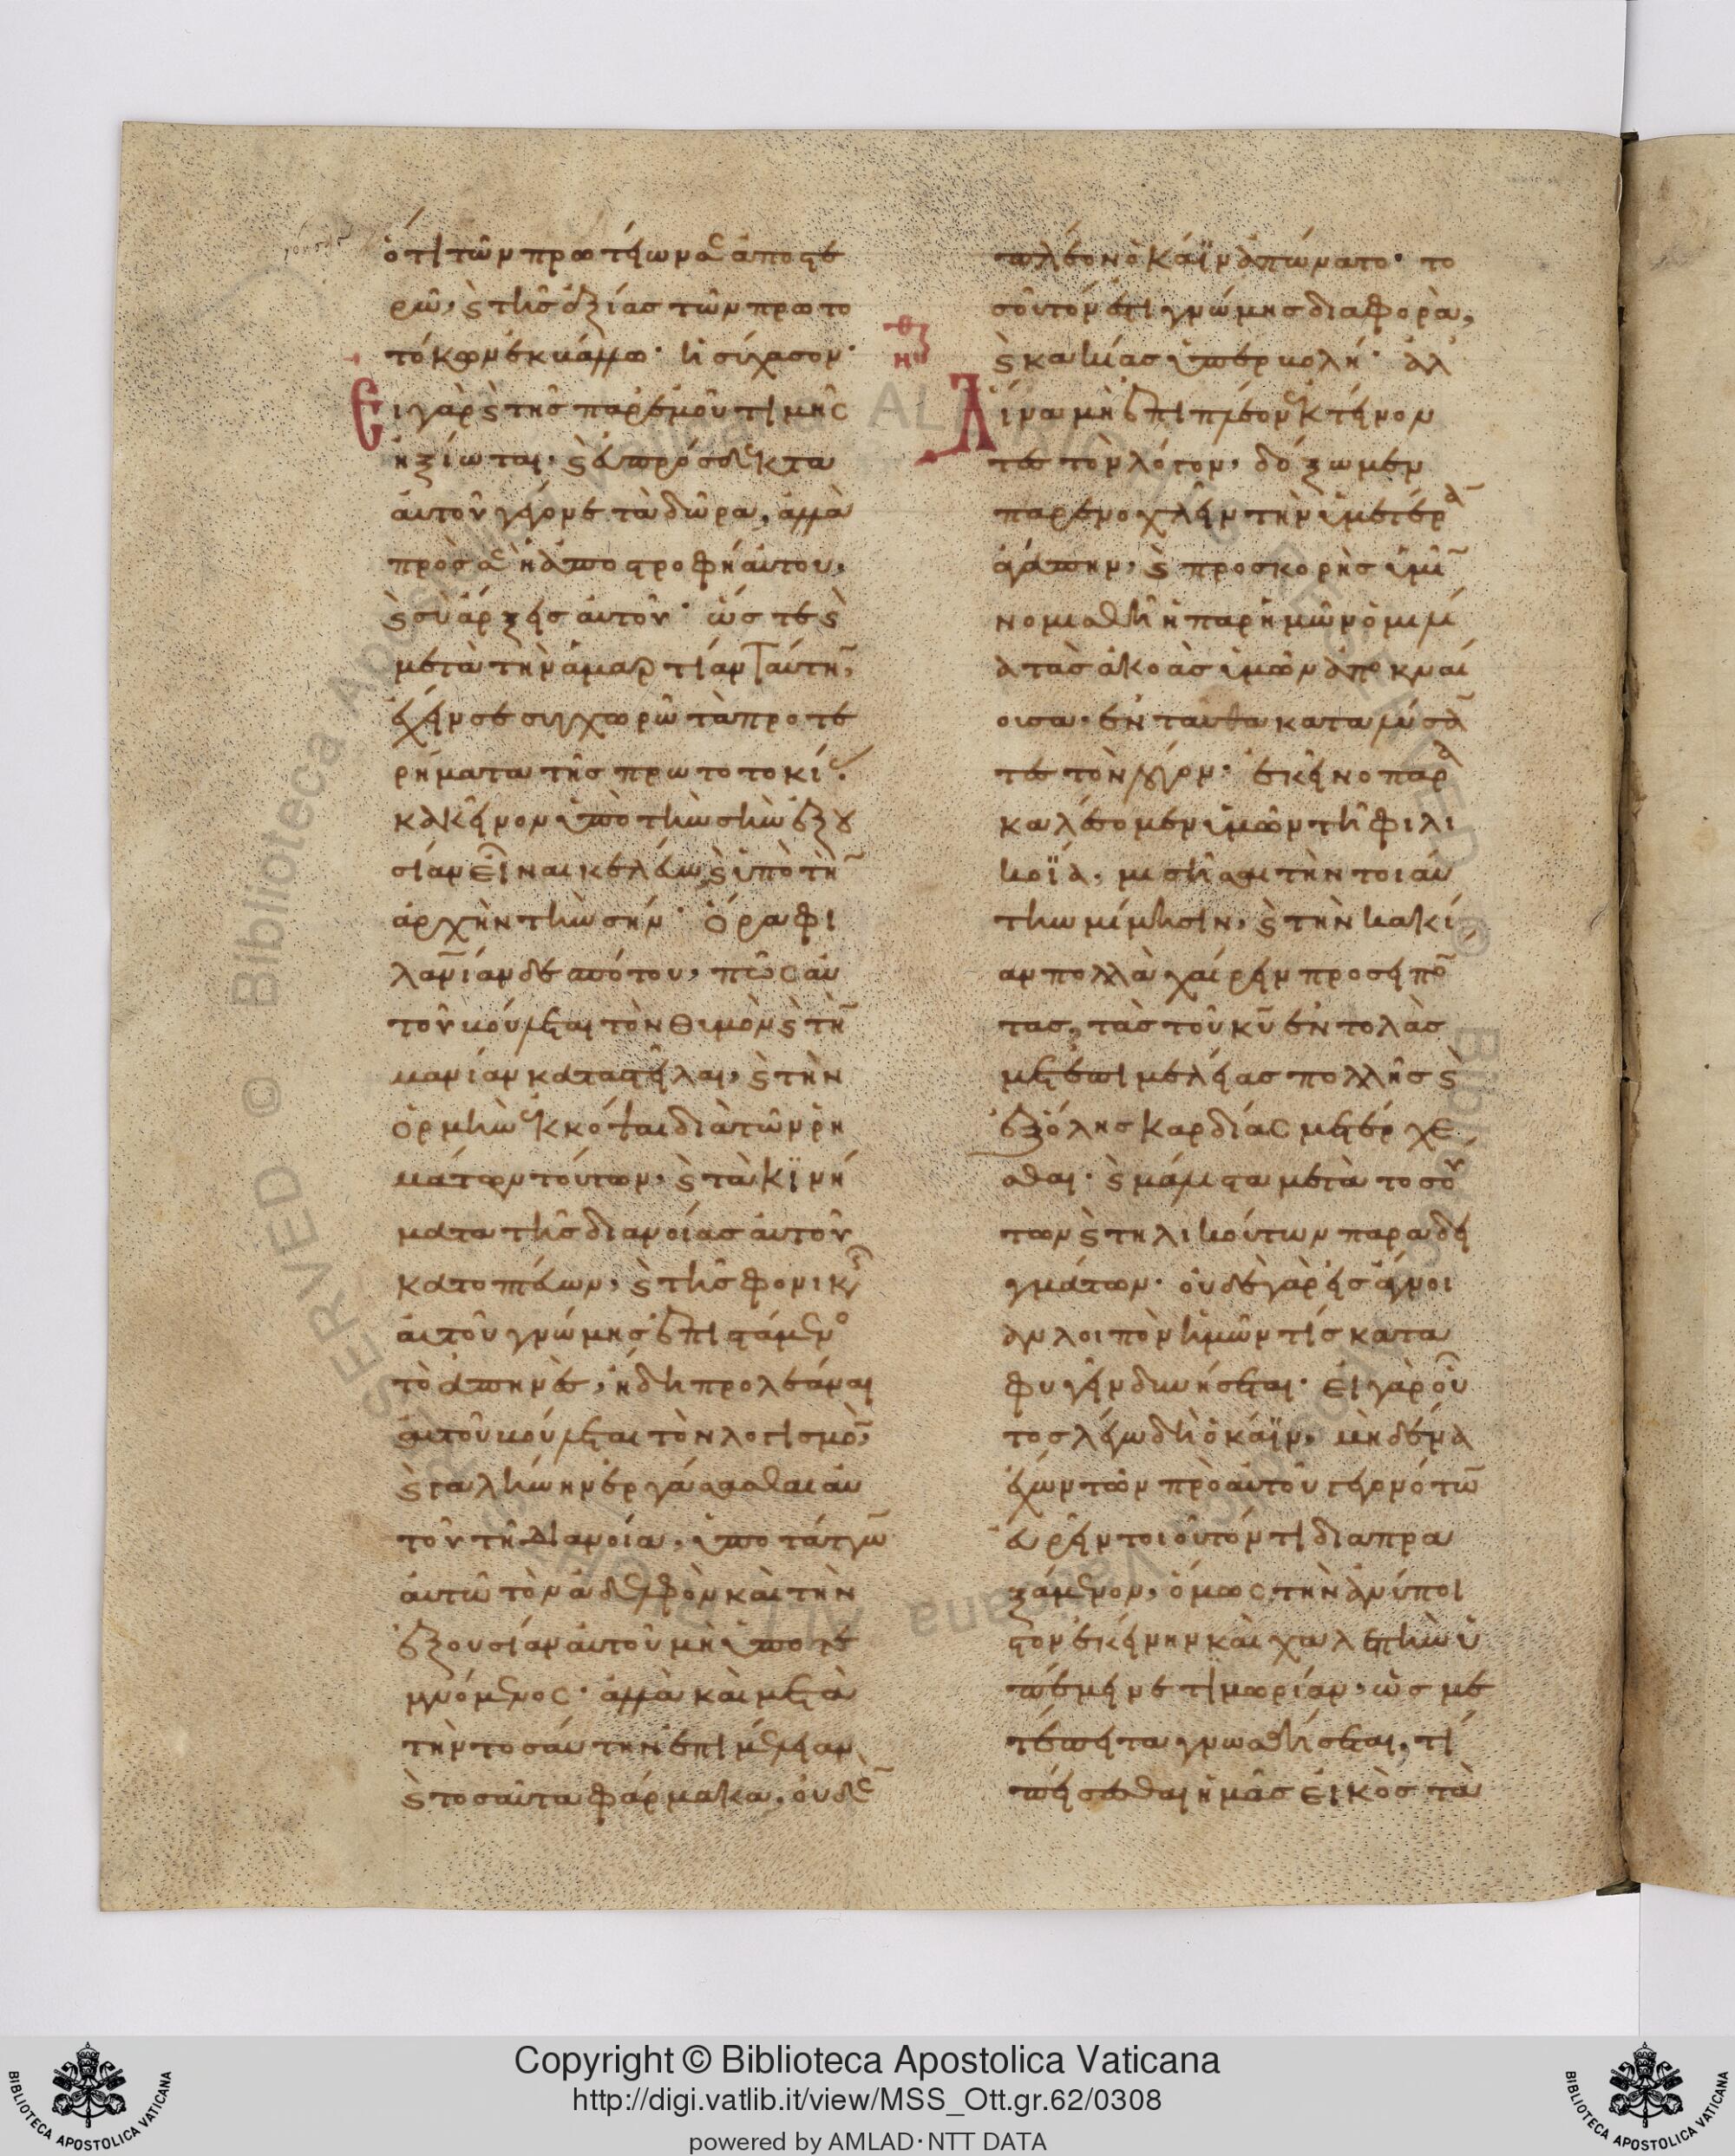 ὅτι τῶν πρωτείων σε ἀποστε
ρῶ, καὶ τῆς ἀξίας τῶν πρωτο
τόκων ἐκβάλλω· ἡσύχασον·
Εἰ γὰρ καὶ τῆς παρ' ἐμοῦ τιμῆς
ἠξίωται, καὶ εὐπρόσδεκτα
αὐτοῦ γέγονε τὰ δῶρα, ἀλλὰ
πρὸς σε ἡ ἀποστροφὴ αὐτοῦ,
καὶ σὺ ἄρξεις αὐτοῦ· ὥστε καὶ
μετὰ τὴν ἁμαρτίαν ταύτην,
ἔχειν σε συγχωρῶ τὰ προτε
ρήματα τῆς πρωτοτοκίας·
κἀκεῖνον ὑπὸ τὴν σὴν ἐξου
σίαν εἶναι κελεύω καὶ ὑπὸ τὴν
ἀρχὴν τὴν σήν· Ὅρα φι
λανίαν δεσπότου, πῶς αὐ
τοῦ βούλεται τὸν θυμὸν καὶ τὴν
μανίαν καταστεῖλαι, καὶ τὴν
ὁρμὴν ἐκκόψαι διὰ τῶν ῥη
μάτων τούτων, καὶ τὰ κινή
ματα τῆς διανοίας αὐτοῦ
κατοπτεύων, καὶ τῆς φονικῆς
αὐτοῦ γνώμης ἐπιστάμενος
τὸ ἀπηνὲς, ἤδη προλεάναι
αὐτοῦ βούλεται τὸν λογισμὸν,
καὶ γαλήνην ἐργάσασθαι αὐ
τοῦ τῇ διανοίᾳ, ὑποτάττων
αὐτῷ τὸν ἀδελφὸν καὶ τὴν
ἐξουσίαν αὐτοῦ μὴ ὑποτε
μνόμενος· ἀλλὰ καὶ μετὰ
τὴν τοσαύτην ἐπιμέλειαν
καὶ τοσαῦτα φάρμακα, οὐδὲν
πλέον ὁ Κάϊν ἀπώνατο· το
σοῦτόν ἐστι γνώμης διαφορὰ,
καὶ κακίας ὑπερβολή· ἀλλ'
Ἀλλ' ἵνα μὴ ἐπιπλέον ἐκτείνον
τες τὸν λόγον, δόξωμεν
παρενοχλεῖν τὴν ὑμετέραν
ἀγάπην, καὶ προσκορὴς ὑμῖν
νομισθῇ ἡ παρ' ἡμῶν ὁμιλί
α τὰς ἀκοὰς ὑμῶν ἀποκναί
ουσα, ἐνταῦθα καταλύσαν
τες τὸν λόγον· ἐκεῖνο παρα
καλέσομεν ὑμῶν τῇ φιλη
κοΐα, μισῆσαι τὴν τοιαύ
την μίμησιν, καὶ τὴν κακί
αν πολλὰ χαίρειν προσειπόν
τας, τὰς τοῦ κυ ἐντολὰς
μετ' ἐπιμελείας πολλῆς καὶ
ἐξ ὅλης καρδίας μετέρχε
σθαι· καὶ μάλιστα μετὰ τοσού
των καὶ τηλικούτων παραδει
γμάτων· οὐδὲ γὰρ εἰς ἄγνοι
αν λοιπὸν ἡμῶν τίς κατα
φυγεῖν δυνήσεται· Εἰ γὰρ οὗ
τος λέγω δὴ ὁ Κάϊν, μηδένα
ἔχων τῶν πρὸ αὐτοῦ γεγονότων
εὑρεῖν τοιοῦτόν τι διαπρα
ξάμενον, ὅμως τὴν ἀνύποι
στον ἐκείνην καὶ χαλεπὴν ὑ
πέμεινε τιμωρίαν, ὡς με
τέπειτα γνωσθήσεται, τί
πείσεσθαι ἡμᾶς εἰκὸς τὰ
Copyright © Biblioteca Apostolica Vaticana
http://digi.vatlib.it/view/MSS_Ott.gr.62/0308
powered by AMLAD·NTT DATA
BIBLIOTECA APOSTOLICA VATICANA
BIBLIOTECA APOSTOLICA VATICANA